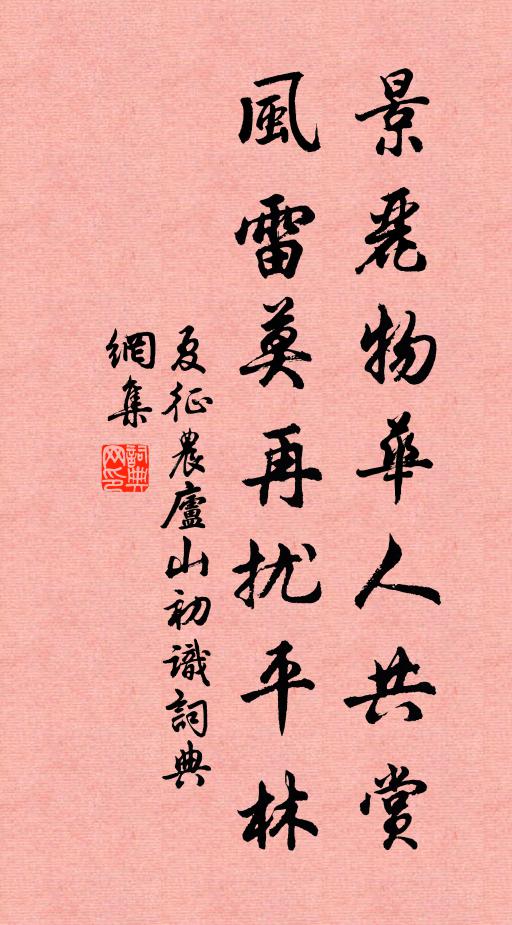 景麗物華人共赏
風雷莫再扰平林
夏征農廬山初識詞典
網集
詞典
网印